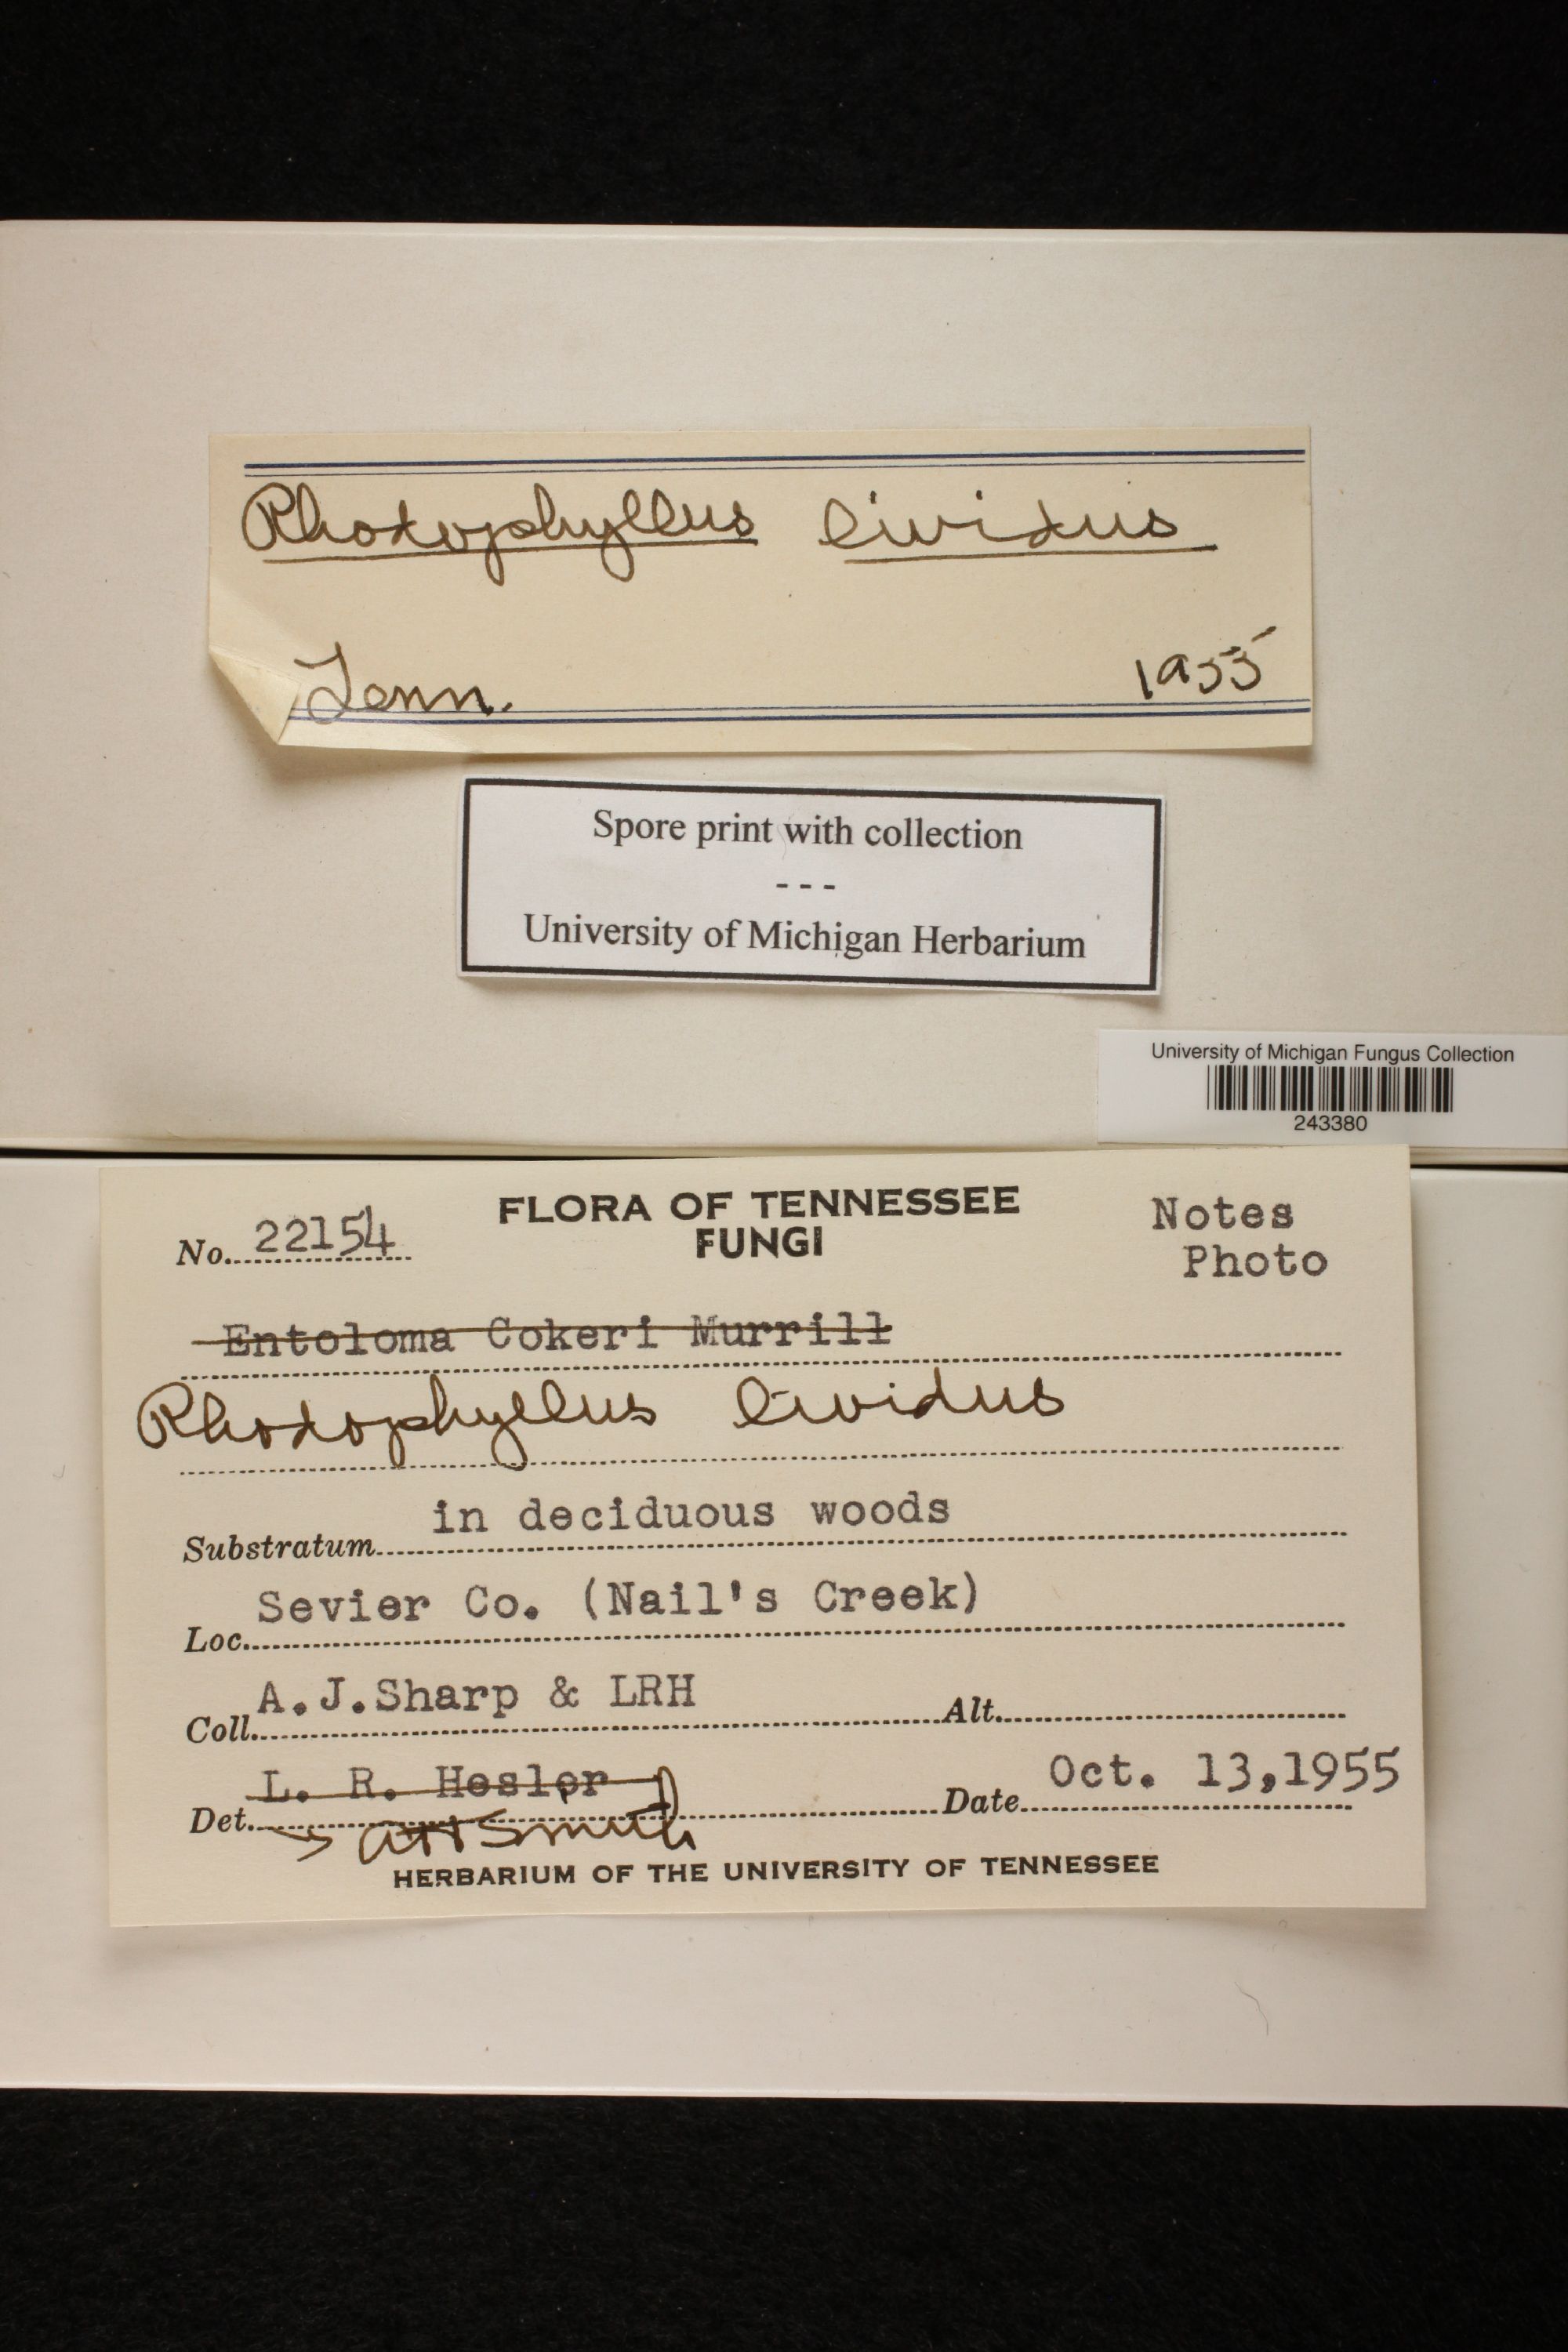 Rhodophyllus lividus
Tenn. 1955
Spore print with collection
---
University of Michigan Herbarium
University of Michigan Fungus Collection
243380
No. 22154
FLORA OF TENNESSEE
FUNGI
Notes
Photo
Entoloma Cokeri Murrill
Rhodophyllus lividus
Substratum in deciduous woods
Loc. Sevier Co. (Nail's Creek)
Coll. A.J.Sharp & LRH Alt.
Det. L. R. Hesler Date Oct. 13,1955
→ AH Smith
HERBARIUM OF THE UNIVERSITY OF TENNESSEE